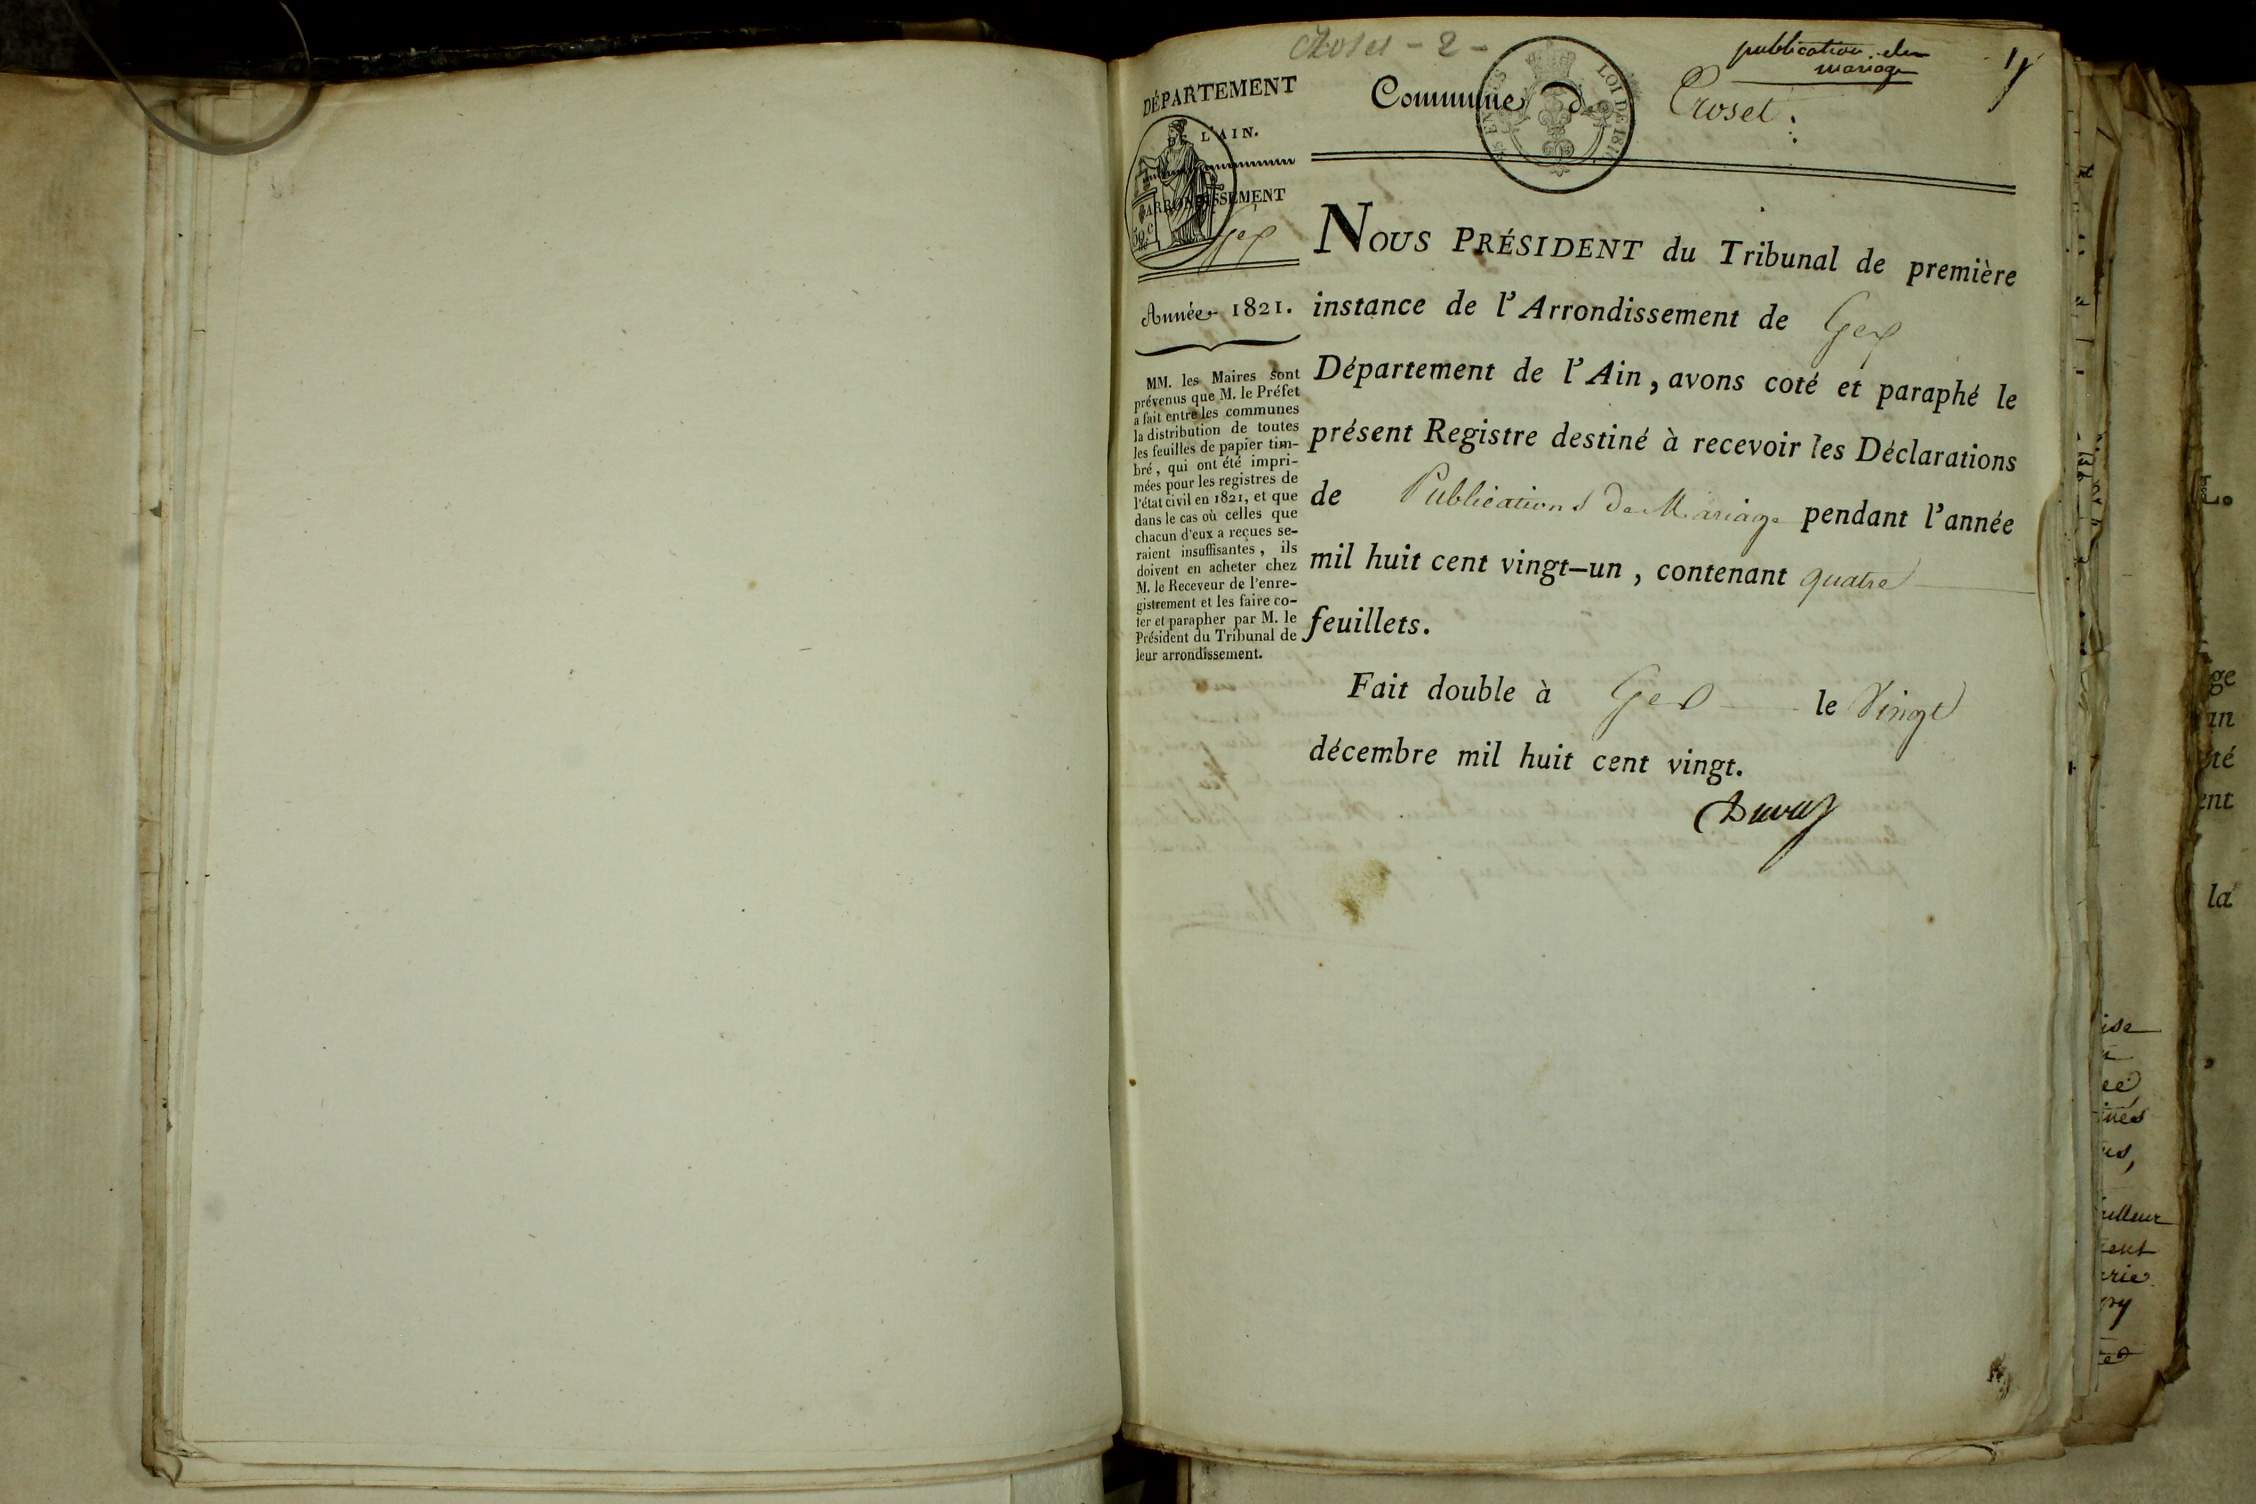 Croset - 2 -
publication de
mariage
DÉPARTEMENT
L'AIN.
ARRONDISSEMENT
Gex
50 c
Commune d
Croset.
LOI DE 181
Année 1821.
MM. les Maires sont
prévenus que M. le Préfet
a fait entre les communes
la distribution de toutes
les feuilles de papier tim-
bré, qui ont été impri-
mées pour les registres de
l'état civil en 1821, et que
dans le cas où celles que
chacun d'eux a reçues se-
raient insuffisantes, ils
doivent en acheter chez
M. le Receveur de l'enre-
gistrement et les faire co-
ter et parapher par M. le
Président du Tribunal de
leur arrondissement.
NOUS PRÉSIDENT du Tribunal de première
instance de l'Arrondissement de Gex
Département de l'Ain, avons coté et paraphé le
présent Registre destiné à recevoir les Déclarations
de Publications de Mariage pendant l'année
mil huit cent vingt-un, contenant quatre
feuillets.
Fait double à Gex le vingt
décembre mil huit cent vingt.